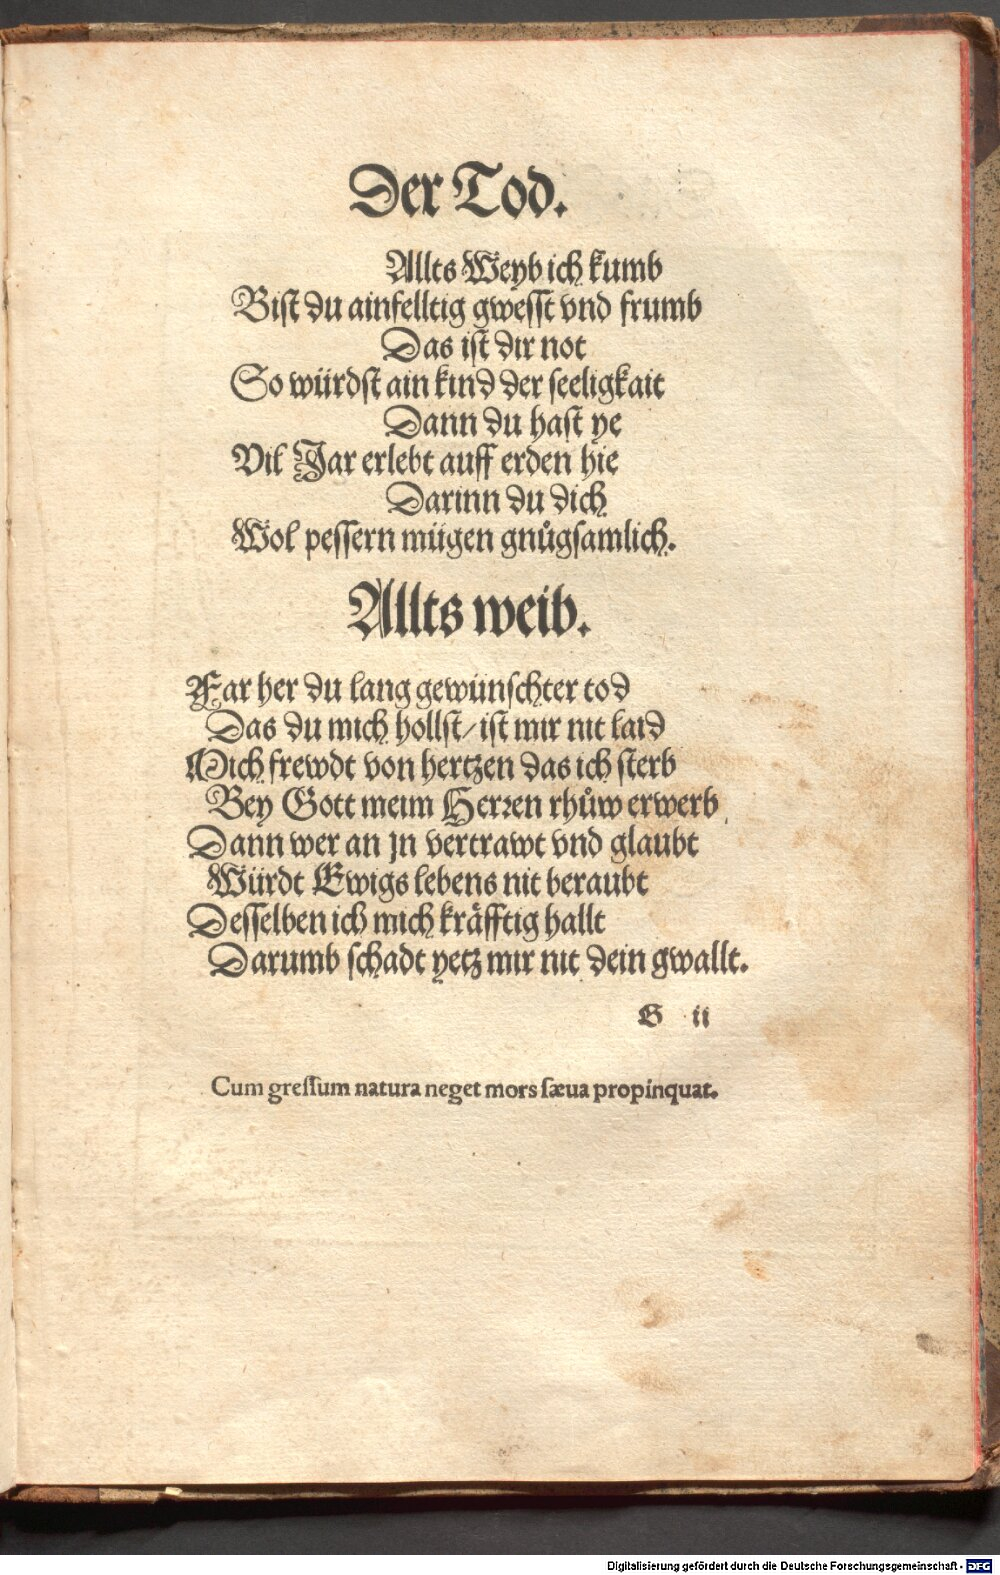 Der Tod.
Allts Weyb ich kumb
Bist du ainfelltig gwesst vnd frumb
Das ist dir not
So würdst ain kind der seeligkait
Dann du hast ye
Vil Jar erlebt auff erden hie
Darinn du dich
Wol pessern mügen gnůgsamlich.
Allts weib.
Far her du lang gewünschter tod
Das du mich hollst/ ist mir nit laid
Mich frewdt von hertzen das ich sterb
Bey Gott meim Herren rhůw erwerb
Dann wer an jn vertrawt vnd glaubt
Würdt Ewigs lebens nit beraubt
Desselben ich mich kräfftig hallt
Darumb schadt yetz mir nit dein gwallt.
G ii
Cum gressum natura neget mors sæua propinquat.
Digitalisierung gefördert durch die Deutsche Forschungsgemeinschaft - DFG